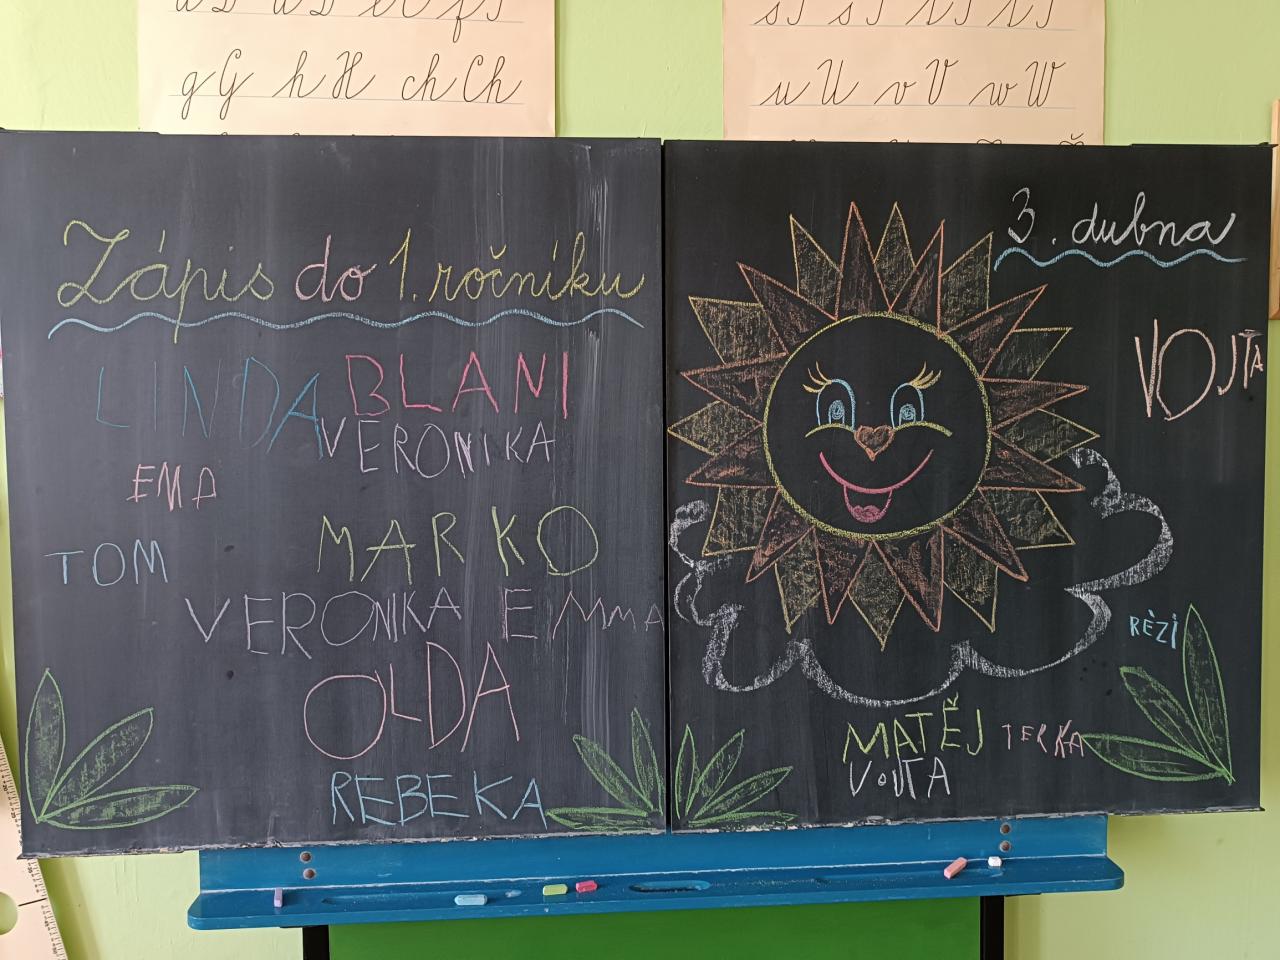 g G h H ch Ch
u U v V w W
Zápis do 1. ročníku
3. dubna
LINDA BLANI
VERONIKA
EMA
MARKO
TOM
VERONIKA EMMA
OLDA
REBEKA
VOJTA
RÉZI
MATĚJ TERKA
VOJTA